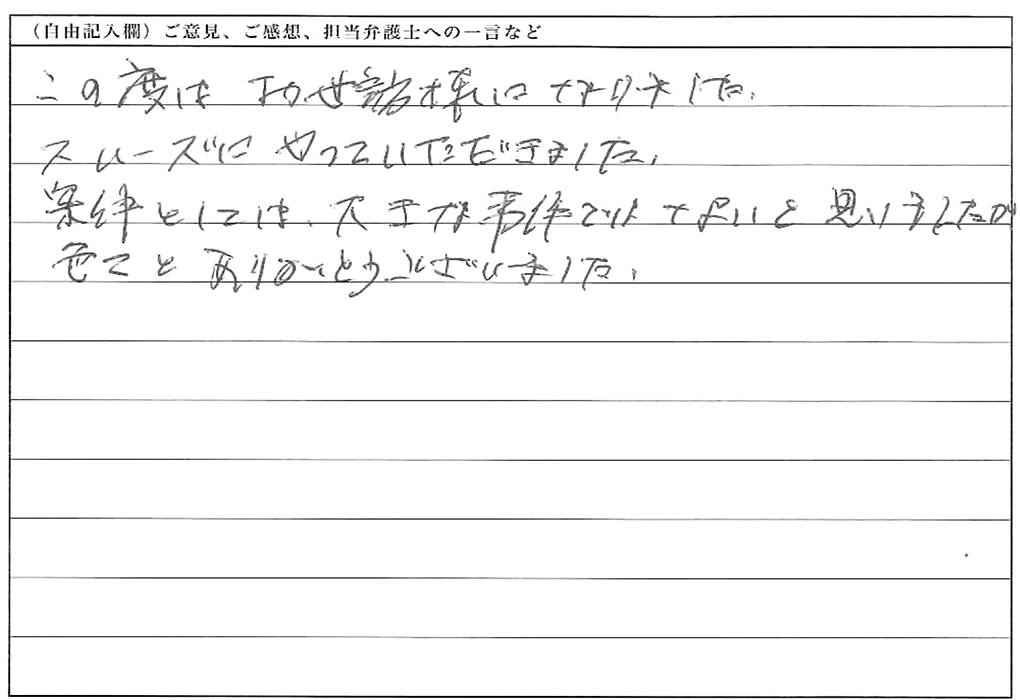 (自由記入欄)ご意見、ご感想、担当弁護士への一言など
この度はお世話様になりました。
スムーズにやっていただきました。
案件としては、大きな事件ではないと思いましたが
色々とありがとうございました。